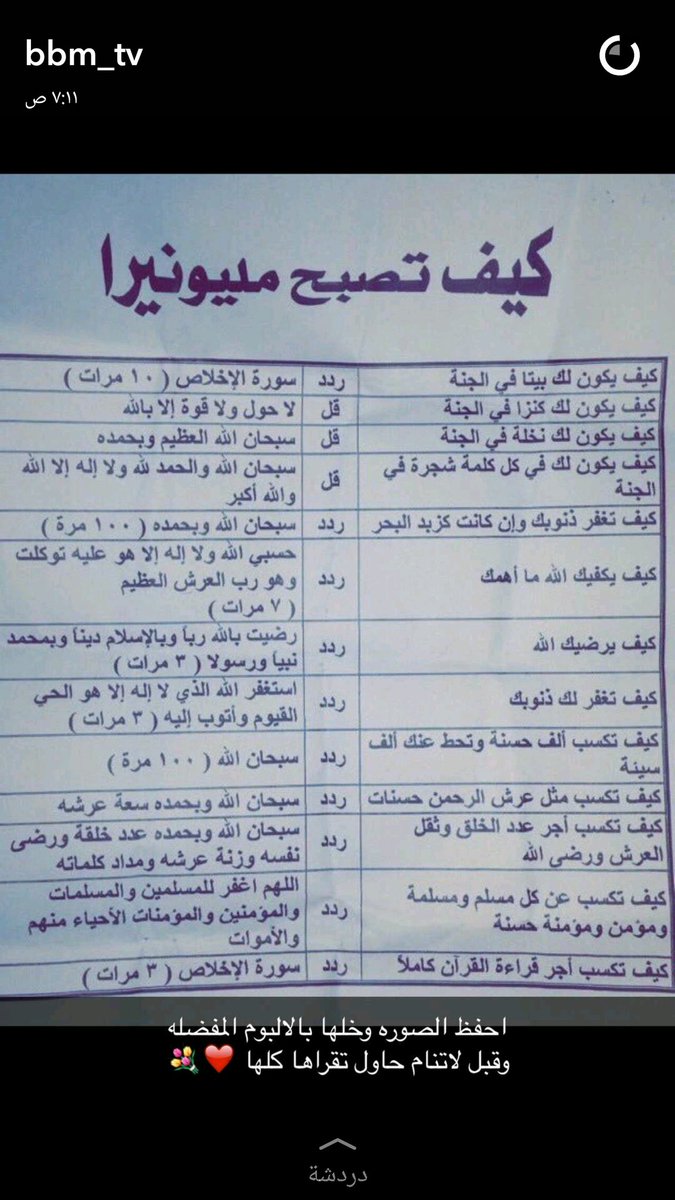 bbm_tv
٧:١١ ص
كيف تصبح مليونيرا
كيف يكون لك بيتا في الجنة ردد سورة الإخلاص ( ١٠ مرات )
كيف يكون لك كنزا في الجنة قل لا حول ولا قوة إلا بالله
كيف يكون لك نخلة في الجنة قل سبحان الله العظيم وبحمده
كيف يكون لك في كل كلمة شجرة في
الجنة
قل
سبحان الله والحمد لله ولا إله إلا الله
والله أكبر
كيف تغفر ذنوبك وإن كانت كزبد البحر ردد سبحان الله وبحمده ( ١٠٠ مرة )
كيف يكفيك الله ما أهمك
ردد
حسبي الله ولا إله إلا هو عليه توكلت
وهو رب العرش العظيم
( ٧ مرات )
كيف يرضيك الله
ردد
رضيت بالله رباً وبالإسلام ديناً وبمحمد
نبياً ورسولا ( ٣ مرات )
كيف تغفر لك ذنوبك
ردد
استغفر الله الذي لا إله إلا هو الحي
القيوم وأتوب إليه ( ٣ مرات )
كيف تكسب ألف حسنة وتحط عنك ألف
سيئة
ردد
سبحان الله ( ١٠٠ مرة )
كيف تكسب مثل عرش الرحمن حسنات ردد سبحان الله وبحمده سعة عرشه
كيف تكسب أجر عدد الخلق وثقل
العرش ورضى الله
ردد
سبحان الله وبحمده عدد خلقة ورضى
نفسه وزنة عرشه ومداد كلماته
كيف تكسب عن كل مسلم ومسلمة
ومؤمن ومؤمنة حسنة
ردد
اللهم اغفر للمسلمين والمسلمات
والمؤمنين والمؤمنات الأحياء منهم
والأموات
كيف تكسب أجر قراءة القرآن كاملاً ردد سورة الإخلاص ( ٣ مرات )
احفظ الصوره وخلها بالالبوم المفضله
وقبل لاتنام حاول تقراها كلها ❤️💐
دردشة